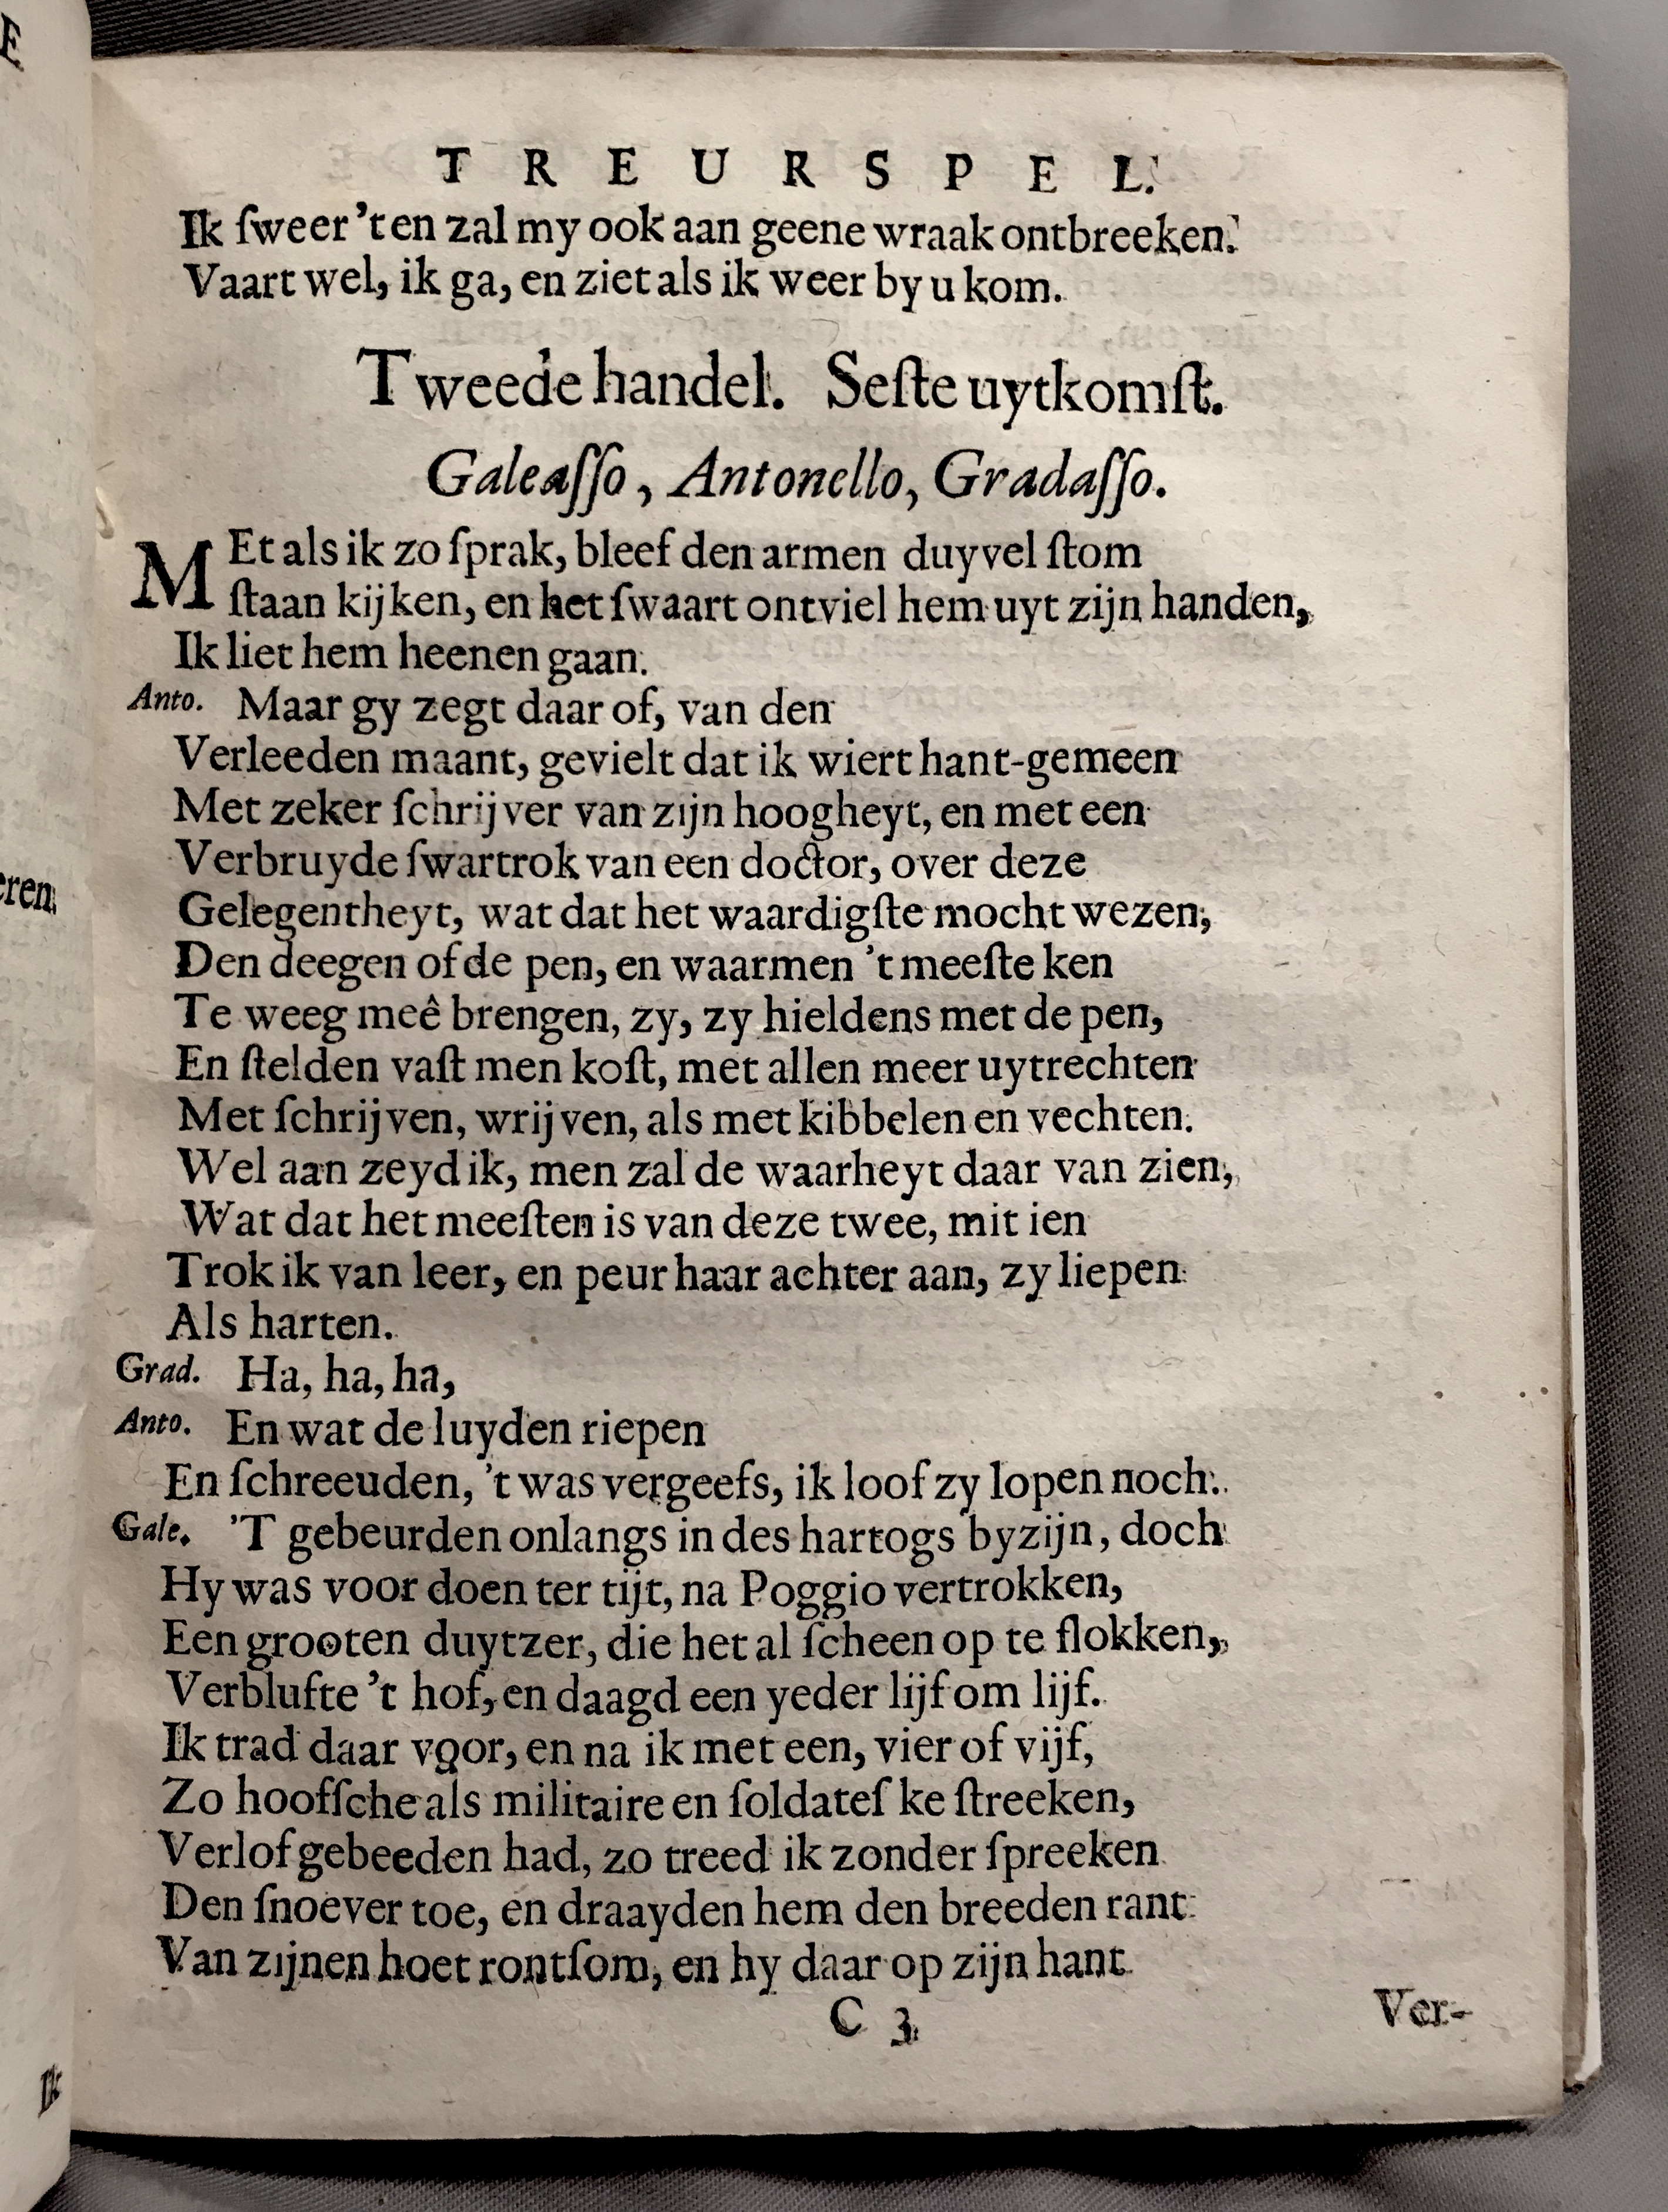 TREURSPEL.
Ik ſweer 't en zal my ook aan geene wraak ontbreeken.
Vaart wel, ik ga, en ziet als ik weer by u kom.
Tweede handel. Seſte uytkomſt.
Galeaſſo, Antonello, Gradaſſo.
MEt als ik zo ſprak, bleef den armen duyvel ſtom
ſtaan kijken, en het ſwaart ontviel hem uyt zijn handen,
Ik liet hem heenen gaan.
Anto. Maar gy zegt daar of, van den
Verleeden maant, gevielt dat ik wiert hant-gemeen
Met zeker ſchrijver van zijn hoogheyt, en met een
Verbruyde ſwartrok van een doctor, over deze
Gelegentheyt, wat dat het waardigſte mocht wezen,
Den deegen of de pen, en waarmen 't meeſte ken
Te weeg meê brengen, zy, zy hieldens met de pen,
En ſtelden vaſt men koſt, met allen meer uytrechten
Met ſchrijven, wrijven, als met kibbelen en vechten.
Wel aan zeyd ik, men zal de waarheyt daar van zien,
Wat dat het meeſten is van deze twee, mit ien
Trok ik van leer, en peur haar achter aan, zy liepen
Als harten.
Grad. Ha, ha, ha,
Anto. En wat de luyden riepen
En ſchreeuden, 't was vergeefs, ik loof zy lopen noch.
Gale. 'T gebeurden onlangs in des hartogs byzijn, doch
Hy was voor doen ter tijt, na Poggio vertrokken,
Een grooten duytzer, die het al ſcheen op te ſlokken,
Verblufte 't hof, en daagd een yeder lijf om lijf.
Ik trad daar voor, en na ik met een, vier of vijf,
Zo hoofſche als militaire en ſoldateſ ke ſtreeken,
Verlof gebeeden had, zo treed ik zonder ſpreeken
Den ſnoever toe, en draayden hem den breeden rant
Van zijnen hoet rontſom, en hy daar op zijn hant
C 3 Ver-
eren.
Ik
E